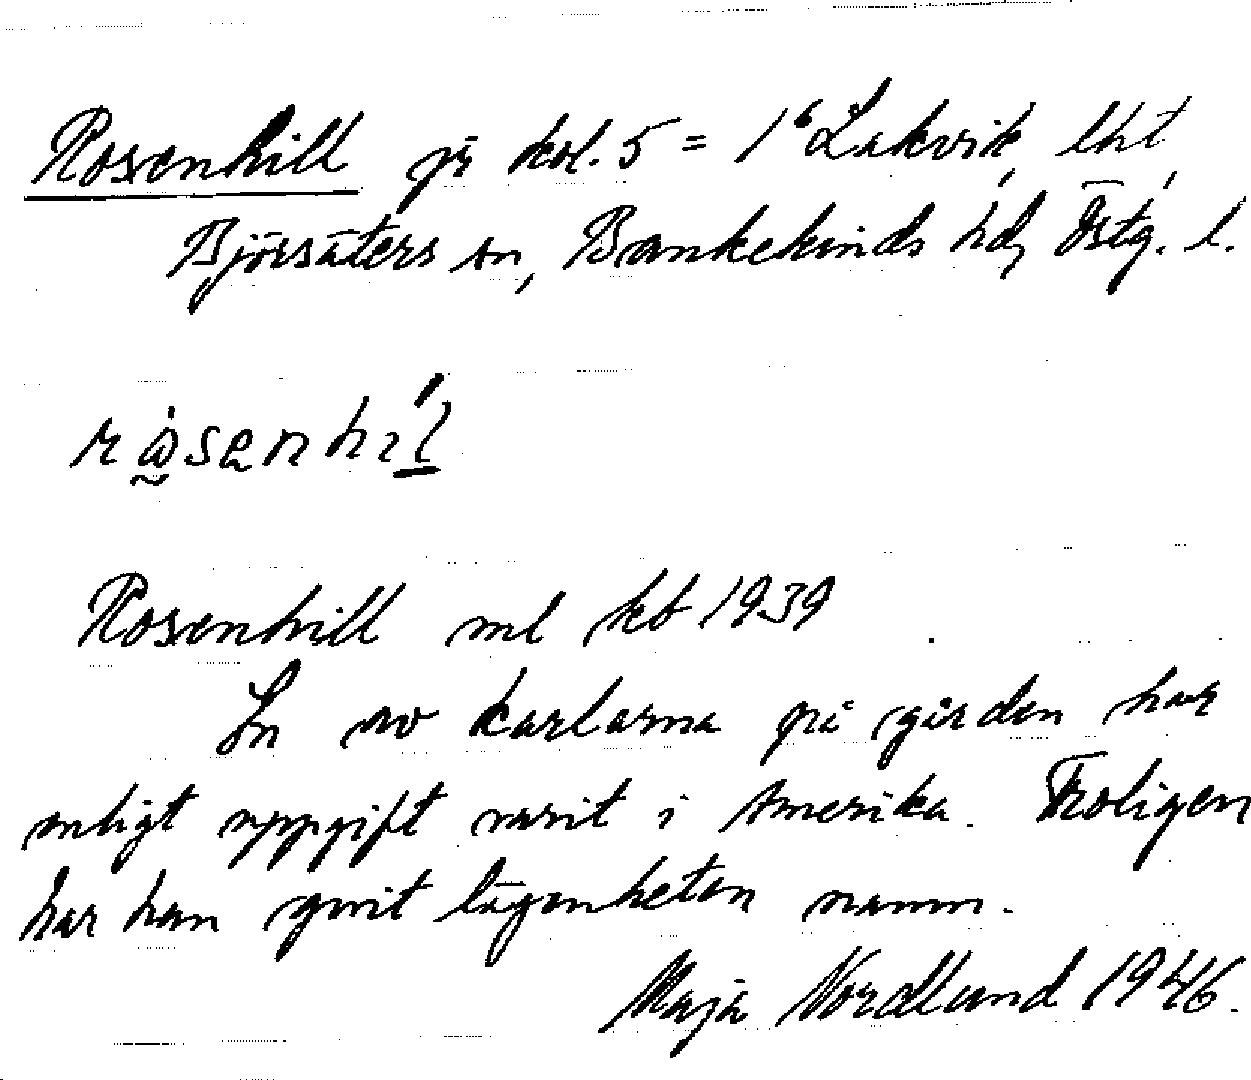 Rosenhill på kol. 5 = 1⁶ Lakvik, lht,
Björsäters sn, Bankekinds hd, Östg. l.
Rosenhill ml kb 1939
En av karlarna på gården har
enligt uppgift varit i Amerika. Troligen
har han givit lägenheten namn.
Maja Nordlund 1946.